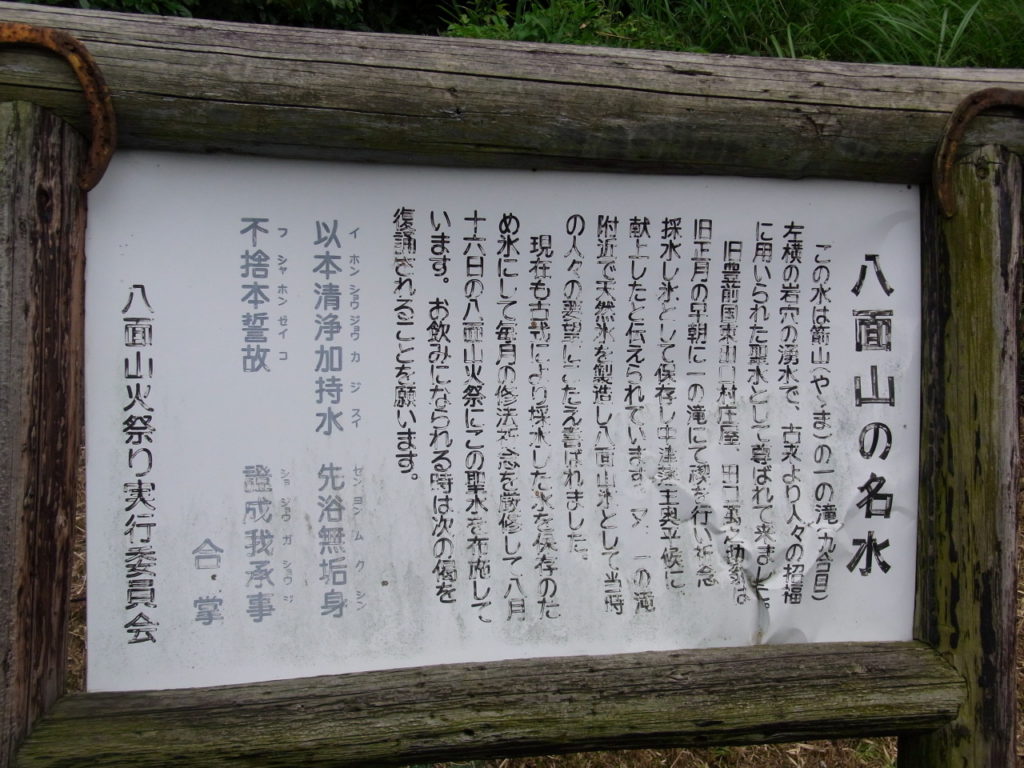 八面山の名水
この水は箭山(やま)の一の滝(九合目)
左横の岩穴の湧水で、古来より人々の招福
に用いられた聖水として尊ばれて来ました。
旧豊前国東山口村庄屋、田口
旧正月の早朝に一の滝にて禊を行い祈念
採水し氷として保存し中津藩主奥平候に
献上したと伝えられています。又、一の滝
附近で天然氷を製造し八面山氷として当時
の人々の要望にこたえ喜ばれました。
現在も古式により採水した水を保存のた
め氷にして毎月の修法祈念を厳修して八月
十六日の八面山火祭にこの聖水を布施して
います。お飲みになられる時は次の偈を
復誦されることを願います。
イ ホン ショウ ジョウ カ ジ スイ セン ヨン ム ク シン
以本清浄加持水 先浴無垢身
フ シャ ホン ゼイ コ ショ ジョウ ガ ショウ ジ
不捨本誓故 證成我承事
合掌
八面山火祭り実行委員会